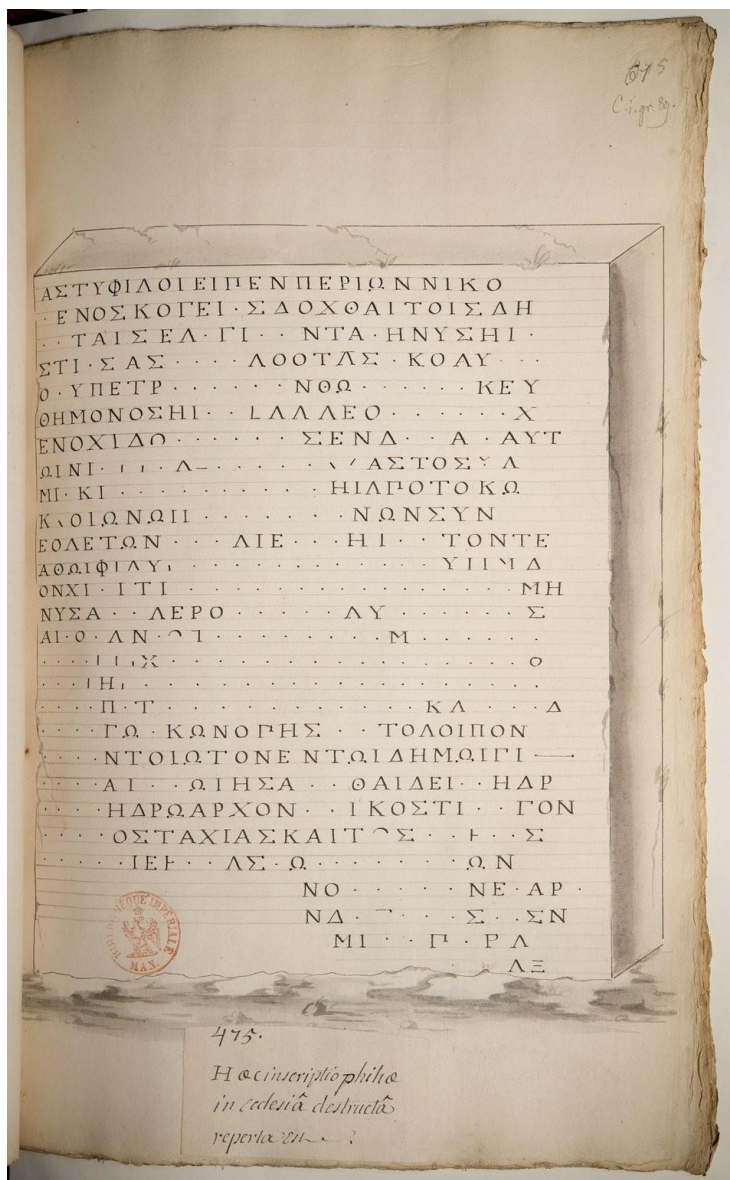 475
C.i.gr. 89.
ΑΣΤΥΦΙΛΟΙΕΙΠΕΝΠΕΡΙΩΝΝΙΚΟ
· ΕΝΟΣΚΟΓΕΙ · ΣΔΟΧΘΑΙΤΟΙΣΔΗ
· · ΤΑΙΣΕΛ · ΓΙ · · ΝΤΑ · ΗΝΥΣΗΙ ·
ΣΤΙ · ΣΑΣ · · · · ΛΟΟΤΛΣ · ΚΟΛΥ · · ·
Ο · ΥΠΕΤΡ · · · · · · ΝΘΩ · · · · · · ΚΕΥ
ΘΗΜΟΝΟΣΗΙ · · LΛΛΛΕΟ · · · · · · Χ
ΕΝΟΧΙΔΩ · · · · · · ΣΕΝΔ · · Α · ΑΥΤ
ΩΙΝΙ · · · · ΑΣΤΟΣ Λ
ΜΙ · ΚΙ · · · · · · · · · · ΗΙΛΠΟΤΟΚΩ
ΟΙΩΝΩΠ · · · · · · · ΝΩΝΣΥΝ
ΕΟΛΕΤΩΝ · · · ΛΙΕ · · · ΗΙ · · ΤΟΝΤΕ
ΑΘΩΙΦΙΛΥ · · · · · · · · · · · Δ
ΟΝΧΙ · ΙΤΙ · · · · · · · · · · · · · · ΜΗ
ΝΥΣΑ · · ΛΕΡΟ · · · · · · ΛΥ · · · · · · Σ
ΑΙ · Ο · ΛΝ · · · · · · · · · Μ · · · · · ·
· · · · Χ · · · · · · · · · · · · · · · Ο
· · · ΙΗ · · · · · · · · · · · · · · · · ·
· · · · Π · Τ · · · · · · · · · · · ΚΛ · · · Δ
· · · · ΓΩ · ΚΩΝΟΓΗΣ · · ΤΟΛΟΙΠΟΝ
· · · · ΝΤΟΙΩΤΟΝΕΝΤΩΙΔΗΜΩΙΓΙ —
· · · · ΑΙ · · ΩΙΗΣΑ · · ΘΑΙΔΕΙ · · ΗΔΡ
· · · · ΗΔΡΩΑΡΧΟΝ · · ΙΚΟΣΤΙ · · ΓΟΝ
· · · · ΟΣΤΑΧΙΑΣΚΑΙΤ Σ · · Ͱ · · Σ
· · · · · ΙΕͰ · · ΛΣ · Ω · · · · · · · ΩΝ
ΝΟ · · · · · ΝΕ · ΑΡ ·
ΝΔ · · · · Σ · · ΣΝ
ΜΙ · · Π · ΡΛ
ΛΞ
BIBLIOTHÈQUE IMPÉRIALE
MAN.
475.
Hæc inscriptio philiæ
in ecclesiâ destructâ
reperta est